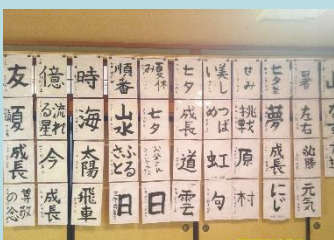 友
億
時
順番
夏休み
七夕
美しい
せみ
七夕
暑
夏
流れる星
海
山水
七夕
成長
めつば
挑戦
夢
左右
成長
今
太陽
ふるさと
道
虹
原
成長
必勝
尊敬の念
成長
飛車
日
日
雲
句
村
にじ
元気